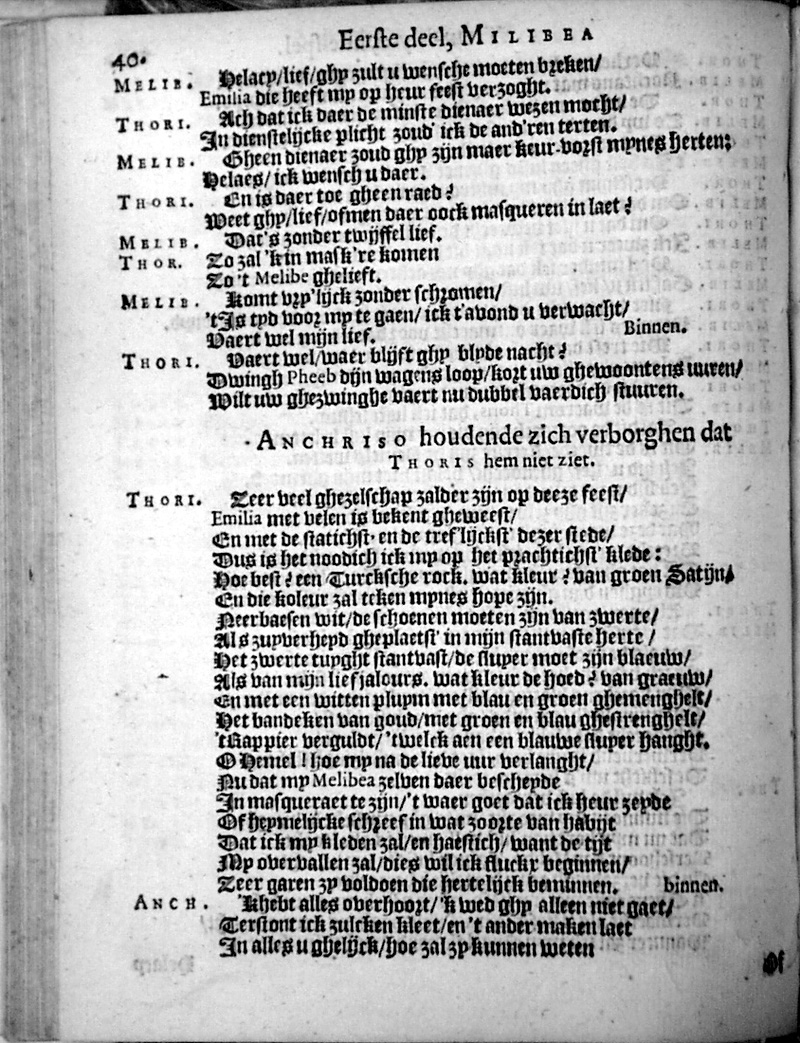 Eerste deel, MILIBEA
40.
MELIB. Helaey/lief/ghy zult u wensche moeten breken/
Emilia die heeft my op heur feest verzoght.
THORI. Ach dat ick daer de minste dienaer wezen mocht/
In dienstelijcke plicht zoud' ick de and'ren terten.
MELIB. Gheen dienaer zoud ghy zijn maer keur-vorst mynes herten;
Helaes/ick wensch u daer.
THORI. En is daer toe gheen raed?
Weet ghy/lief/ofmen daer oock masqueren in laet?
MELIB. Dat's zonder twijffel lief.
THOR. Zo zal 'k in mask're komen
Zo 't Melibe ghelieft.
MELIB. Komt vry'lijck zonder schromen/
't Is tyd voor my te gaen/ick t'avond u verwacht/
Vaert wel mijn lief. Binnen.
THORI. Vaert wel/waer blijft ghy blyde nacht?
Dwingh Pheeb dijn wagens loop/kort uw ghewoontens uuren/
Wilt uw ghezwinghe vaert nu dubbel vaerdich stuuren.
ANCHRISO houdende zich verborghen dat
THORIS hem niet ziet.
THORI. Zeer veel ghezelschap zalder zijn op deeze feest/
Emilia met velen is bekent gheweest/
En met de statichst' en de tref'lijckst' dezer stede/
Dus is het noodich ick my op het prachtichst' klede:
Hoe best? een Turcksche rock. wat kleur? van groen Satijn/
En die koleur zal teken mynes hope zijn.
Neerbaesen wit/de schoenen moeten zijn van zwerte/
Als zuyverheyd gheplaetst' in mijn stantvaste herte/
Het zwerte tuyght stantvast/de sluyer moet zijn blaeuw/
Als van mijn lief jalours. wat kleur de hoed? van graeuw/
En met een witten pluym met blau en groen ghemenghelt/
Het bandeken van goud/met groen en blau ghestrenghelt/
't Rappier verguldt/'twelck aen een blauwe sluyer hanght.
O Hemel! hoe my na de lieve uur verlanght/
Nu dat my Melibea zelven daer bescheyde
In masqueraet te zijn/'t waer goet dat ick heur zeyde
Of heymelijcke schreef in wat zoorte van habijt
Dat ick my kleden zal/en haestich/want de tijt
My overvallen zal/dies wil ick flucks beginnen/
Zeer garen zy voldoen die hertelijck beminnen. binnen.
ANCH. 'Khebt alles overhoort/'k wed ghy alleen niet gaet/
Terstont ick zulcken kleet/en 't ander maken laet
In alles u ghelijck/hoe zal zy kunnen weten
Of